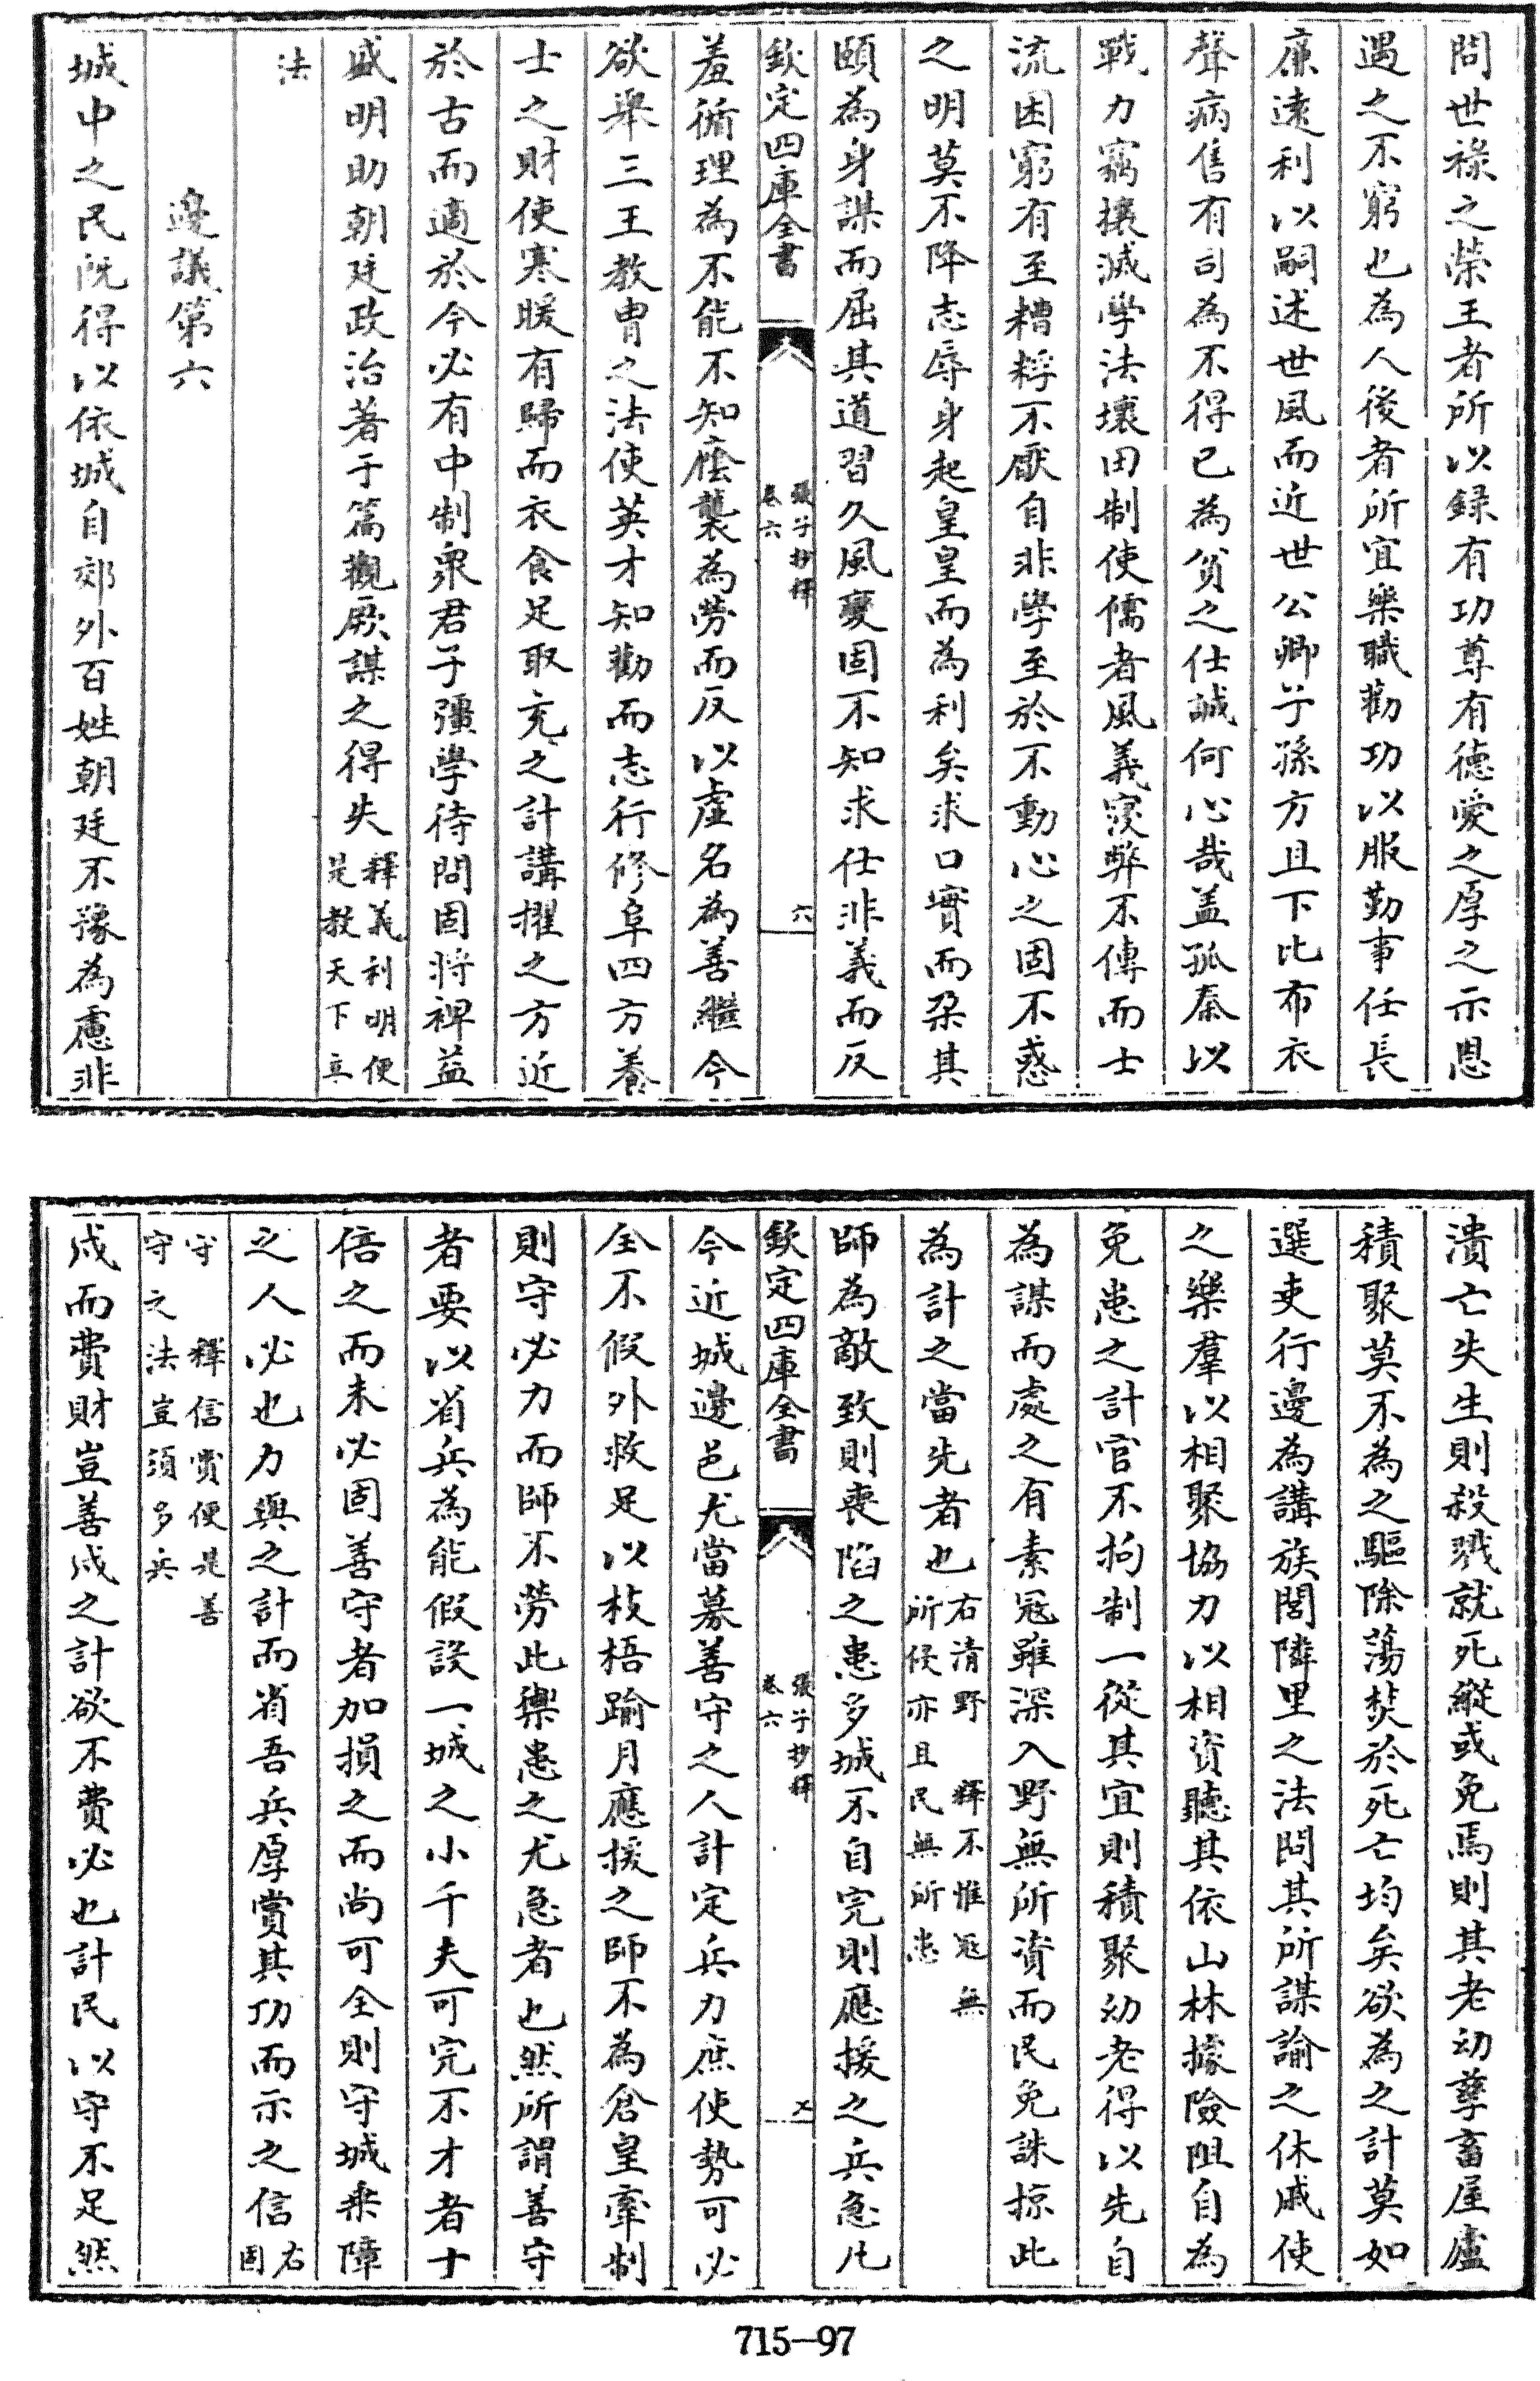 問世祿之榮王者所以録有功尊有德愛之厚之示恩
遇之不窮也為人後者所宜樂職勸功以服勤事任長
廉逺利以嗣述世風而近世公卿子孫方且下比布衣
聲病售有司為不得已為貧之仕誠何心哉盖孤秦以
戰力竊攘滅學法壞田制使儒者風義寖弊不傳而士
流困窮有至糟粰不厭自非學至於不動心之固不惑
之明莫不降志辱身起皇皇而為利矣求口實而朶其
頤為身謀而屈其道習久風變固不知求仕非義而反
欽定四庫全書
張子抄釋
卷六
六
羞循理為不能不知廕襲為勞而反以虚名為善繼今
欲舉三王教胄之法使英才知勸而志行修阜四方養
士之財使寒暖有歸而衣食足取充之計講擢之方近
於古而適於今必有中制衆君子彊學待問固將裨益
盛明助朝廷政治著于篇觀厥謀之得失
釋義利明便
是教天下立
法
邊議第六
城中之民旣得以依城自郊外百姓朝廷不豫為慮非
潰亡失生則殺戮就死縱或免焉則其老幼孳畜屋廬
積聚莫不為之驅除蕩焚於死亡均矣欲為之計莫如
選吏行邊為講族閭隣里之法問其所謀諭之休戚使
之樂羣以相聚協力以相資聽其依山林據險阻自為
免患之計官不拘制一從其宜則積聚幼老得以先自
為謀而處之有素冦雖深入野無所資而民免誅掠此
為計之當先者也
右清野　釋不惟冦無
所侵亦且民無所患
師為敵致則喪陷之患多城不自完則應援之兵急凡
欽定四庫全書
張子抄釋
卷六
七
今近城邊邑尤當募善守之人計定兵力庶使勢可必
全不假外救足以枝梧踰月應援之師不為倉皇牽制
則守必力而師不勞此禦患之尤急者也然所謂善守
者要以省兵為能假設一城之小千夫可完不才者十
倍之而未必固善守者加損之而尚可全則守城乘障
之人必也力與之計而省吾兵厚賞其功而示之信
右
固
守　釋信賞便是善
守之法豈須多兵
戍而費財豈善戍之計欲不費必也計民以守不足然
715-97